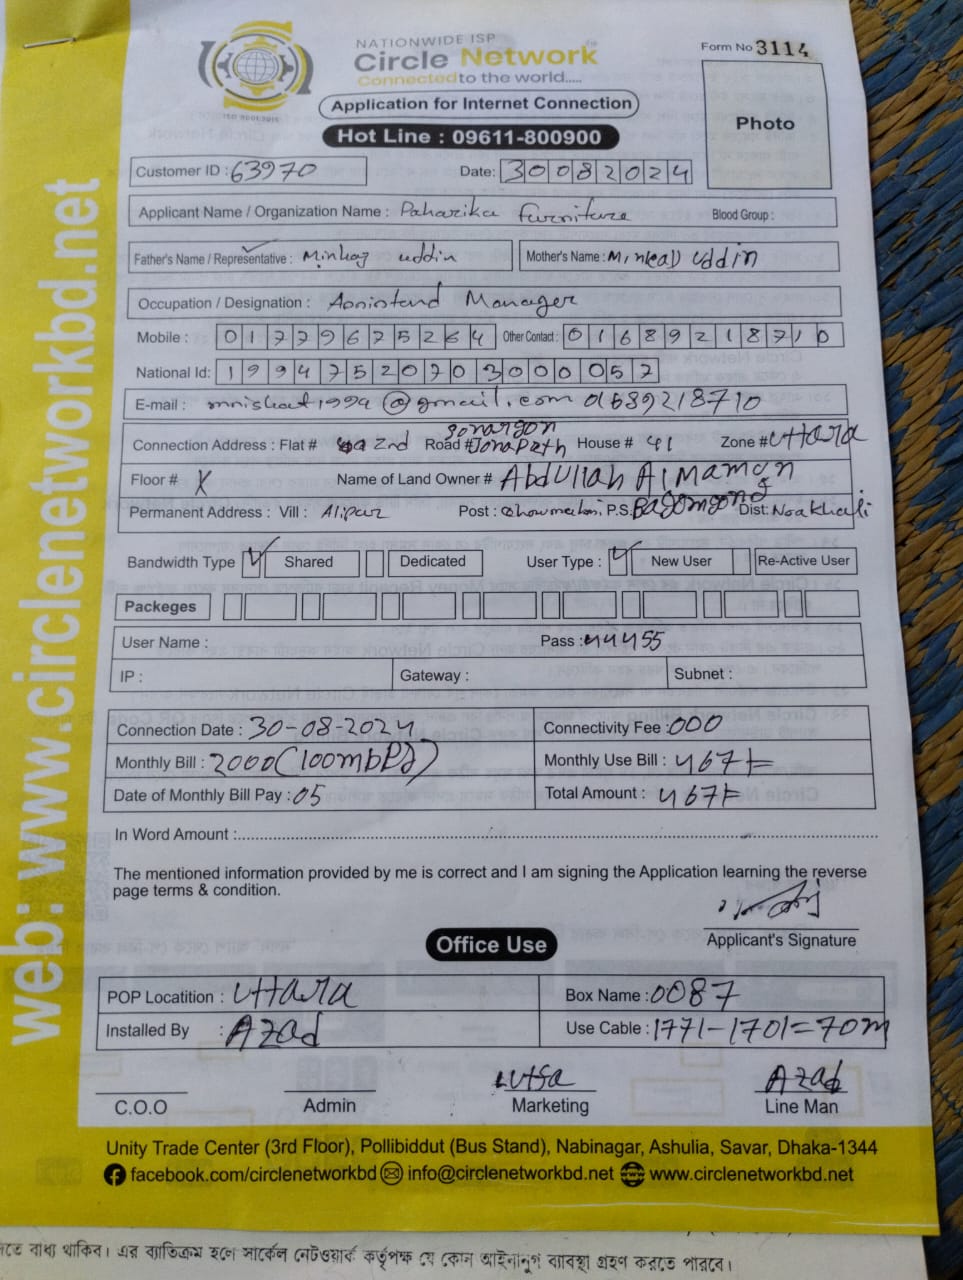 NATIONWIDE ISP
Circle Network
Connected to the world.....
ISO 9001:2015
Form No 3114
Application for Internet Connection
Hot Line : 09611-800900
Photo
Customer ID : 63970 Date: 30082024
Applicant Name / Organization Name : Paharika Furniture Blood Group :
Father's Name / Representative : Minhaz uddin Mother's Name : Uddin
Occupation / Designation : Manager
Mobile : 01779675264 Other Contact : 01689218710
National Id: 19947520703000057
E-mail : @gmail.com 01689218710
Connection Address : Flat # 2nd Road # sonargon Jonapath House # 41 Zone # Uttara
Floor # X Name of Land Owner # Abdullah Al Mamon
Permanent Address : Vill : Alipur Post : P.S. Dist: Noakhali
Bandwidth Type ✓ Shared Dedicated User Type : ✓ New User Re-Active User
Packeges
User Name : Pass : 44455
IP : Gateway : Subnet :
Connection Date : 30-08-2024 Connectivity Fee : 000
Monthly Bill : 2000 (100mbps) Monthly Use Bill : 467/=
Date of Monthly Bill Pay : 05 Total Amount : 467/=
In Word Amount :
The mentioned information provided by me is correct and I am signing the Application learning the reverse
page terms & condition.
Applicant's Signature
Office Use
POP Locatition : Uttara Box Name : 0087
Installed By : Azad Use Cable : 1771-1701=70m
Lutfa Azad
C.O.O Admin Marketing Line Man
Unity Trade Center (3rd Floor), Pollibiddut (Bus Stand), Nabinagar, Ashulia, Savar, Dhaka-1344
facebook.com/circlenetworkbd info@circlenetworkbd.net www.circlenetworkbd.net
web: www.circlenetworkbd.net
বাধ্য থাকিব। এর ব্যতিক্রম হলে সার্কেল নেটওয়ার্ক কর্তৃপক্ষ যে কোন আইনানুগ ব্যাবস্থা গ্রহণ করতে পারবে।